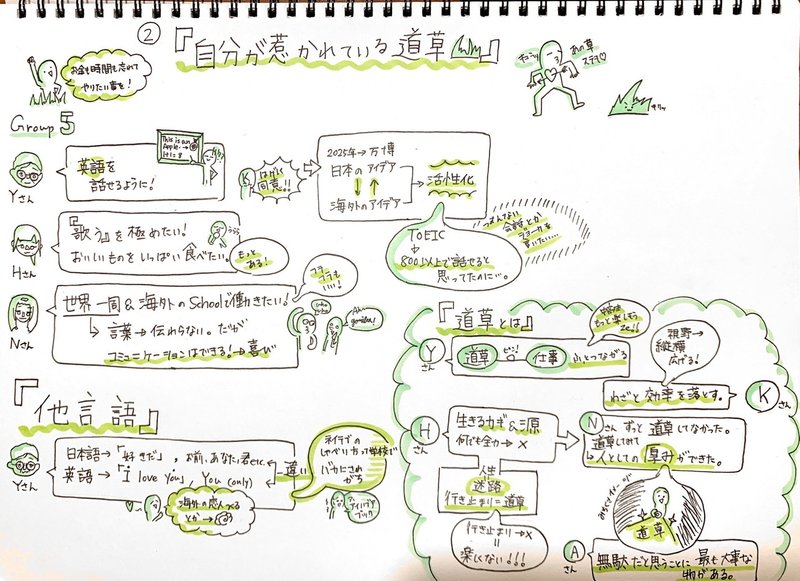 ②
『自分が惹かれている道草』
お金も時間も忘れて
やりたい事を!
チュラッ
あの草
ステキ♡
Group 5
Yさん
英語を
話せるように!
This is an
Apple.
Kさん
はげしく
同意!!
2025年→万博
日本のアイデア
海外のアイデア
活性化
TOEIC
800以上で話せると
思ってたのに…。
つまんない
会話とか
ジョークを
言いたい…
Hさん
『歌う』を極めたい!
おいしいものをいっぱい食べたい。
うらら
もっと
ある!
Nさん
世界一周&海外のSchoolで働きたい!
言葉→伝わらない。だが
コミュニケーションはできる!→喜び
コラ
コラも
いい!
『他言語』
Yさん
日本語→「好きだ」、お前、あなた、君etc.
英語→「I love you」, You (only)
違い
海外の恋人つくる
とか→
ネイティブの
しゃべり方って学校で
バカにされ
がち
『道草とは』
Yさん
道草
仕事
ふとつながる
もっと楽しもう
視野→
縦横
広げる!
わざと効率を落とす。
Kさん
Hさん
生きるカギ&源
何でも全力→×
人生
迷路
行き止まり=道草
行き止まり→×
=
楽しくない!!!
Nさん
ずっと道草してなかった。
道草してみて
→人としての厚みができた。
道草
Aさん
無駄だと思うことに最も大事な
物がある。